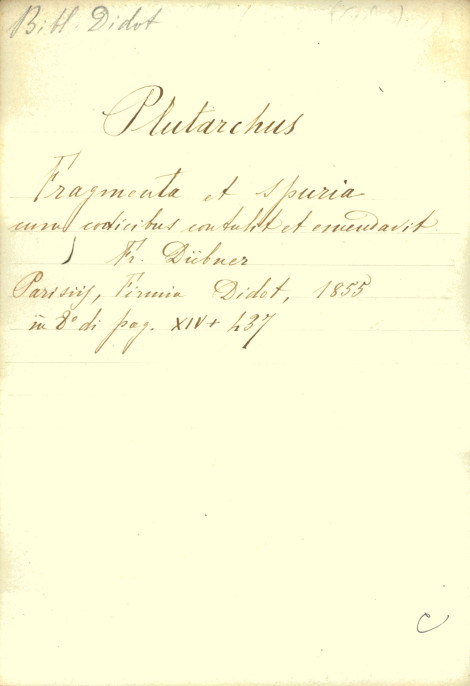 Bibl. Didot
Plutarchus
Fragmenta et spuria
cum codicibus contulit et emendavit
Fr. Dübner
Parisiis, Firmin Didot, 1855
in 8° di pag. XIV + 437
C